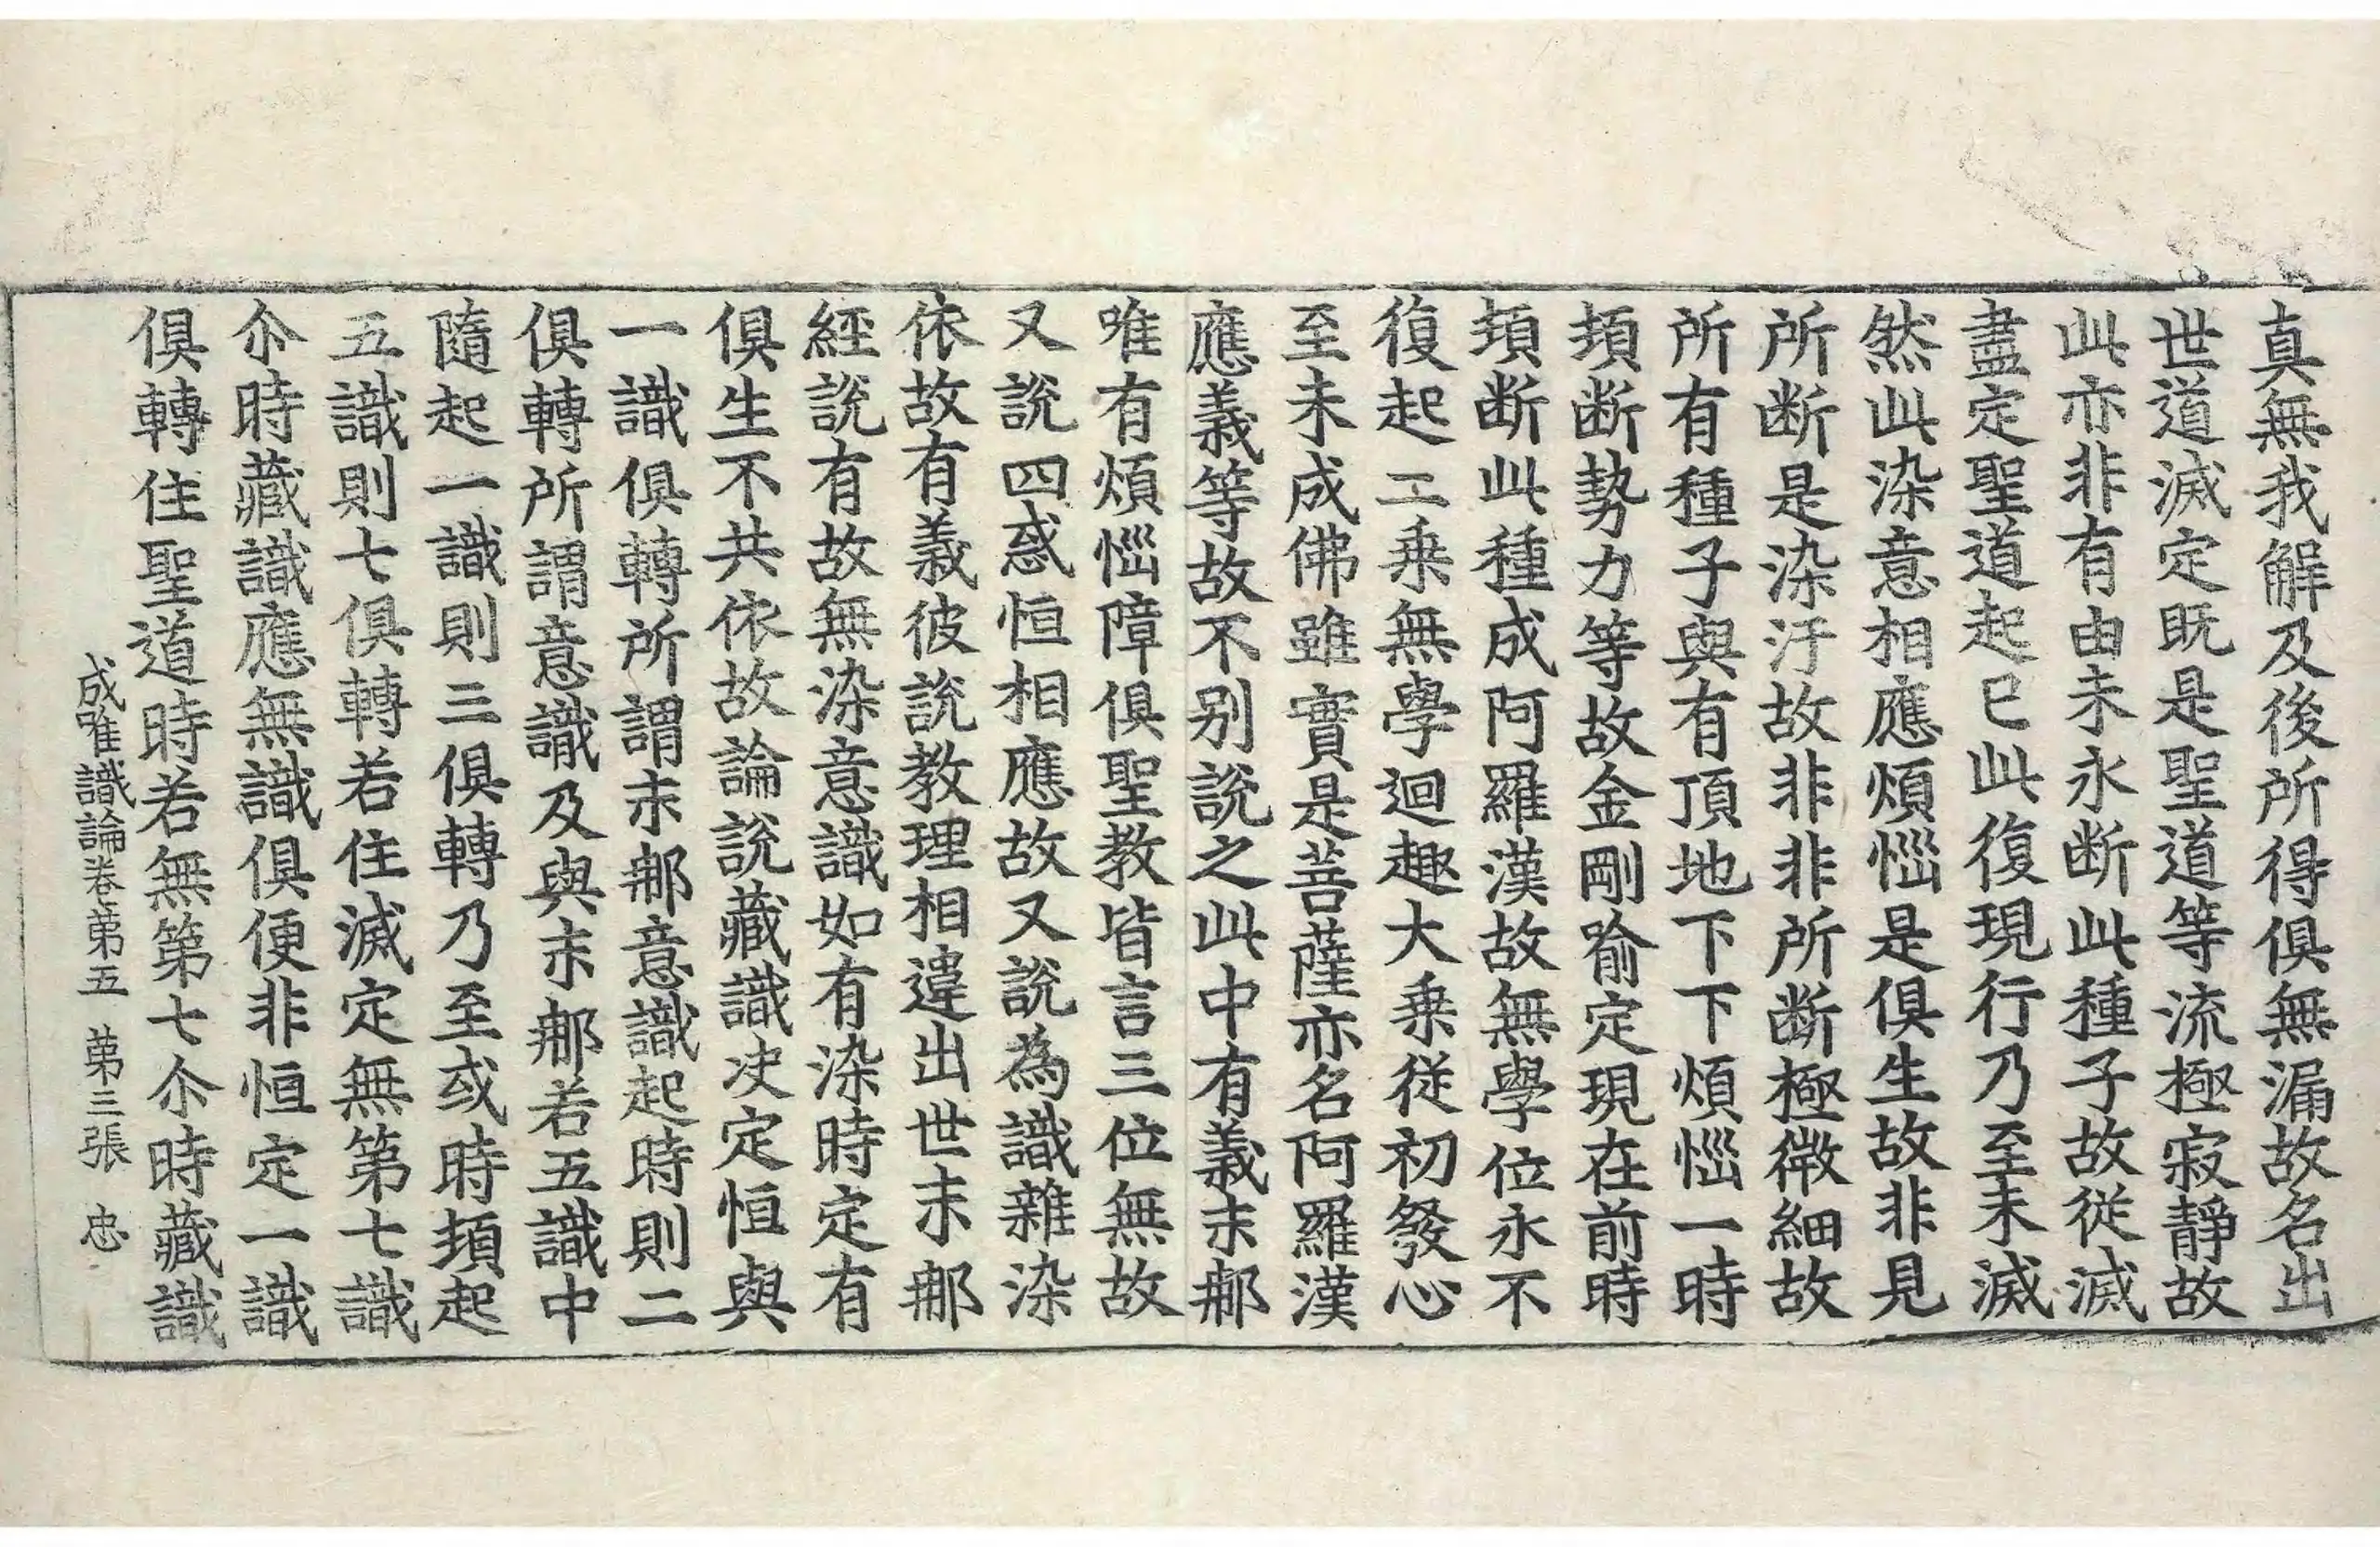 真無我解及後所得俱無漏故名出
世道滅定既是聖道等流極寂靜故
此亦非有由未永断此種子故從滅
盡定聖道起已此復現行乃至未滅
然此染意相應煩惱是俱生故非見
所断是染汙故非非所断極微細故
所有種子與有頂地下下煩惱一時
頓断勢力等故金剛喻定現在前時
頓断此種成阿羅漢故無學位永不
復起二乘無學迴趣大乘從初發心
至未成佛雖實是菩薩亦名阿羅漢
應義等故不别說之此中有義末那
唯有煩惱障俱聖教皆言三位無故
又說四惑恒相應故又說為識雜染
依故有義彼說教理相違出世末那
經說有故無染意識如有染時定有
俱生不共依故論說藏識决定恒與
一識俱轉所謂末那意識起時則二
俱轉所謂意識及與末那若五識中
隨起一識則三俱轉乃至或時頓起
五識則七俱轉若住滅定無第七識
尒時藏識應無識俱便非恒定一識
俱轉住聖道時若無第七尒時藏識
成唯識論卷第五 第三張 忠